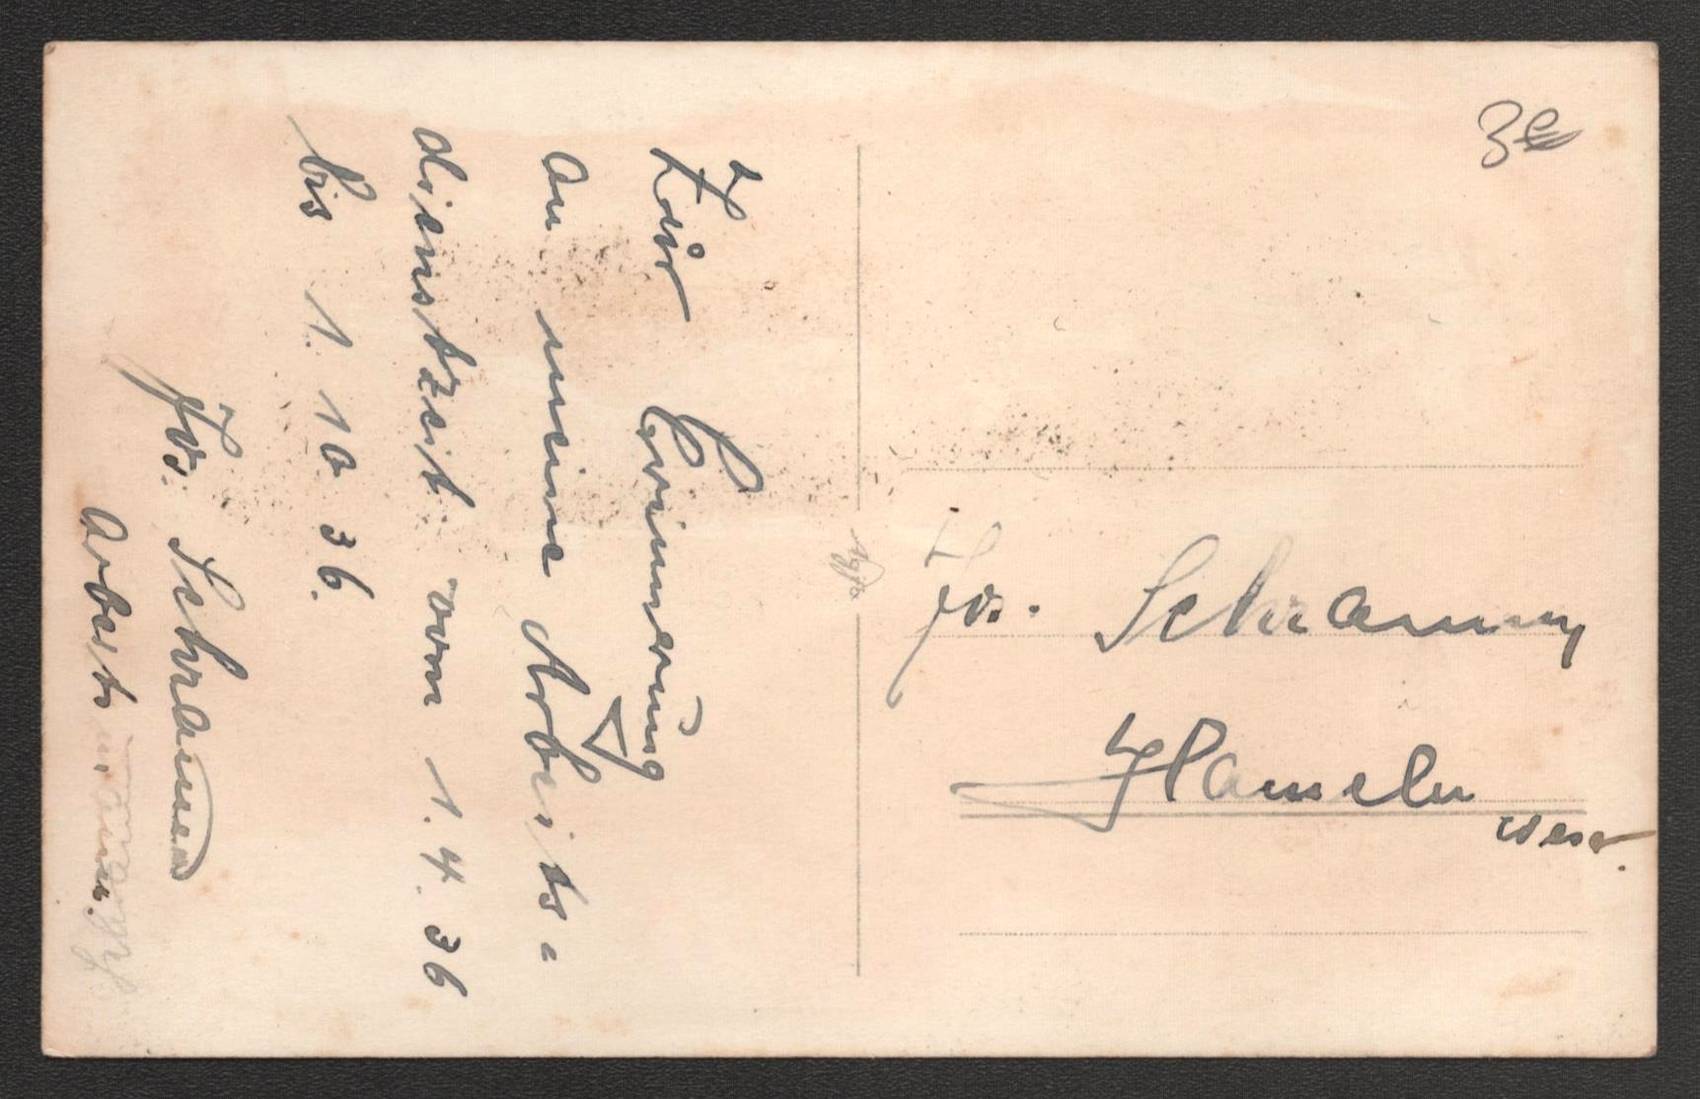 Zur Erinnerung
an meine Arbeits-
dienstzeit vom 1. 4. 36
bis 1. 10. 36.
Jos. Schramm
Arbeitsmann.
Jos. Schramm
Hameln
Weser.